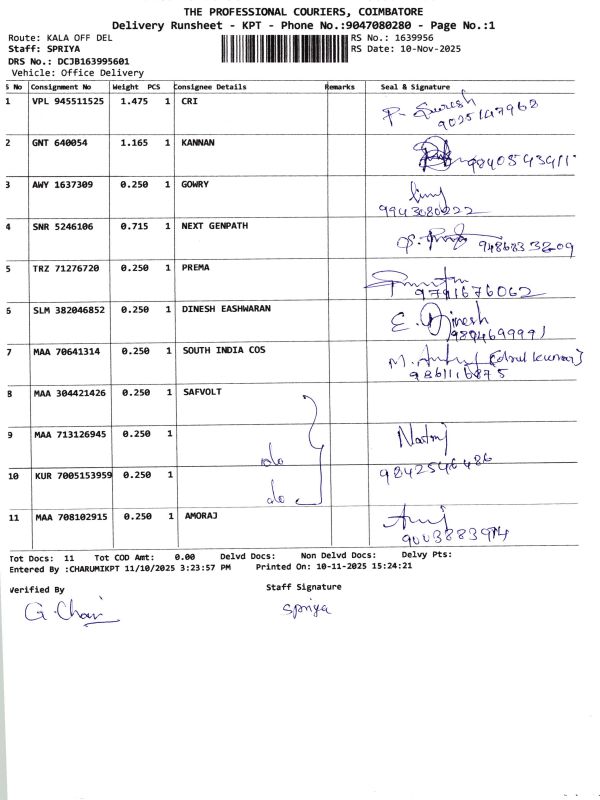 THE PROFESSIONAL COURIERS, COIMBATORE
Delivery Runsheet - KPT - Phone No.:9047080280 - Page No.:1
Route: KALA OFF DEL RS No.: 1639956
Staff: SPRIYA RS Date: 10-Nov-2025
DRS No.: DCJB163995601
Vehicle: Office Delivery
S No Consignment No Weight PCS Consignee Details Remarks Seal & Signature
1 VPL 945511525 1.475 1 CRI P. Suresh
9025147968
2 GNT 640054 1.165 1 KANNAN
3 AWY 1637309 0.250 1 GOWRY
4 SNR 5246106 0.715 1 NEXT GENPATH
5 TRZ 71276720 0.250 1 PREMA
9791676062
6 SLM 382046852 0.250 1 DINESH EASHWARAN E. Dinesh
7 MAA 70641314 0.250 1 SOUTH INDIA COS M.
8 MAA 304421426 0.250 1 SAFVOLT
9 MAA 713126945 0.250 1 do
9842546486
10 KUR 7005153959 0.250 1 do
11 MAA 708102915 0.250 1 AMORAJ
Tot Docs: 11 Tot COD Amt: 0.00 Delvd Docs: Non Delvd Docs: Delvy Pts:
Entered By :CHARUMIKPT 11/10/2025 3:23:57 PM Printed On: 10-11-2025 15:24:21
Verified By Staff Signature
Spriya